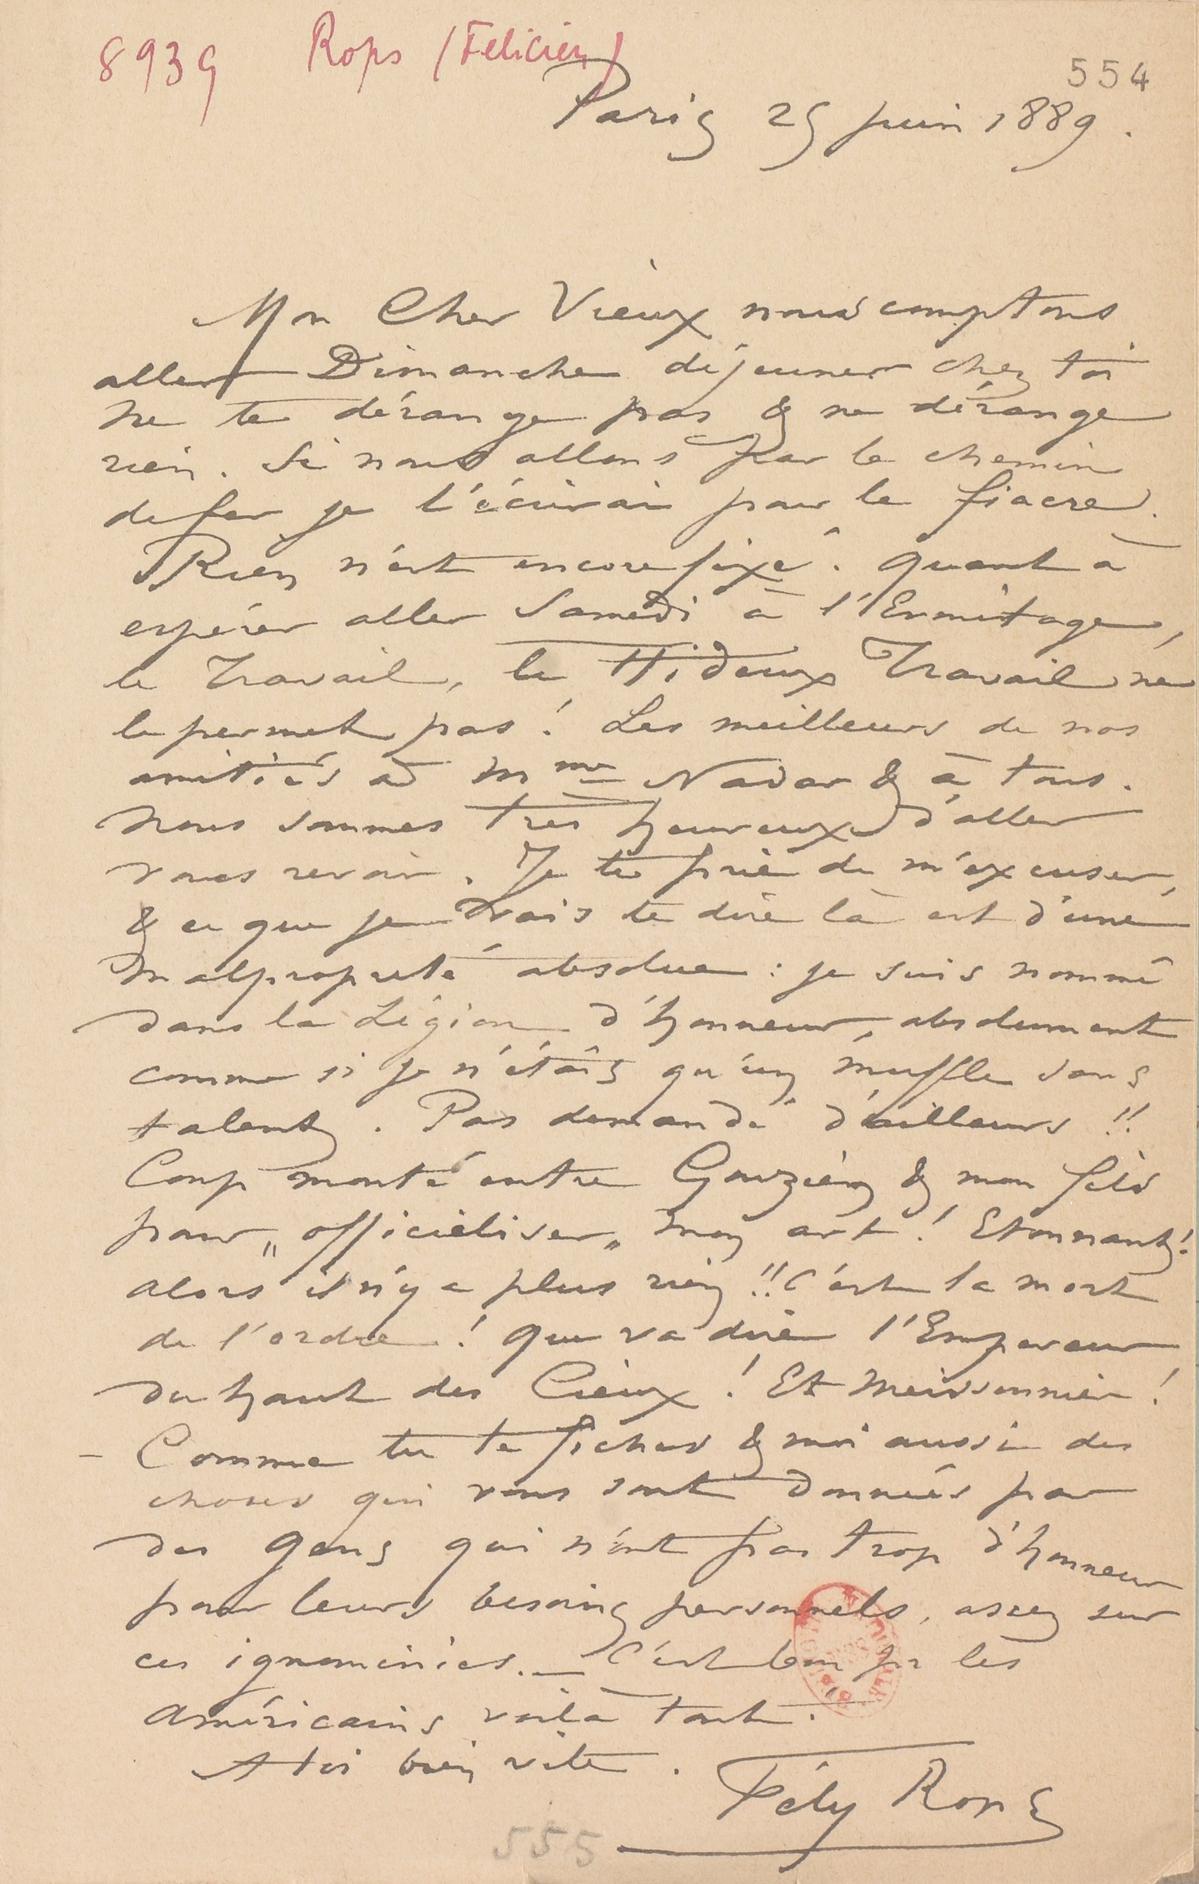 8939 Rops (Félicien)
554
Paris 25 juin 1889.
Mon Cher Vieux nous comptons
aller Dimanche déjeuner chez toi
ne te dérange pas & ne dérange
rien. Si nous allons par le chemin
de fer je t'écrirai pour le fiacre.
Rien n'est encore fixé. Quant à
espérer aller Samedi à l'Ermitage,
le Travail, le Hideux Travail ne
le permet pas! Les meilleurs de nos
amitiés à Mme Nadar & à tous.
Nous sommes très heureux d'aller
vous revoir. Je te prie de m'excuser,
& ce que je vais te dire là est d'une
malpropreté absolue: je suis nommé
dans la Légion d'honneur, absolument
comme si je n'étais qu'un muffle sans
talent. Pas demandé d'ailleurs!!
Coup monté entre Gouzien & mon fils
pour "officieliser" mon art! Etonnant!
alors il n'y a plus rien!! C'est la mort
de l'ordre! Que va dire l'Empereur
du haut des Cieux! Et Meissonnier!
– Comme tu te fiches & moi aussi des
choses qui vous sont données par
des gens qui n'ont pas trop d'honneur
pour leurs besoins personnels, assez sur
ces ignominies. – C'est bon pr les
américains voilà tout.
A toi bien vite.
Fély Rops
555